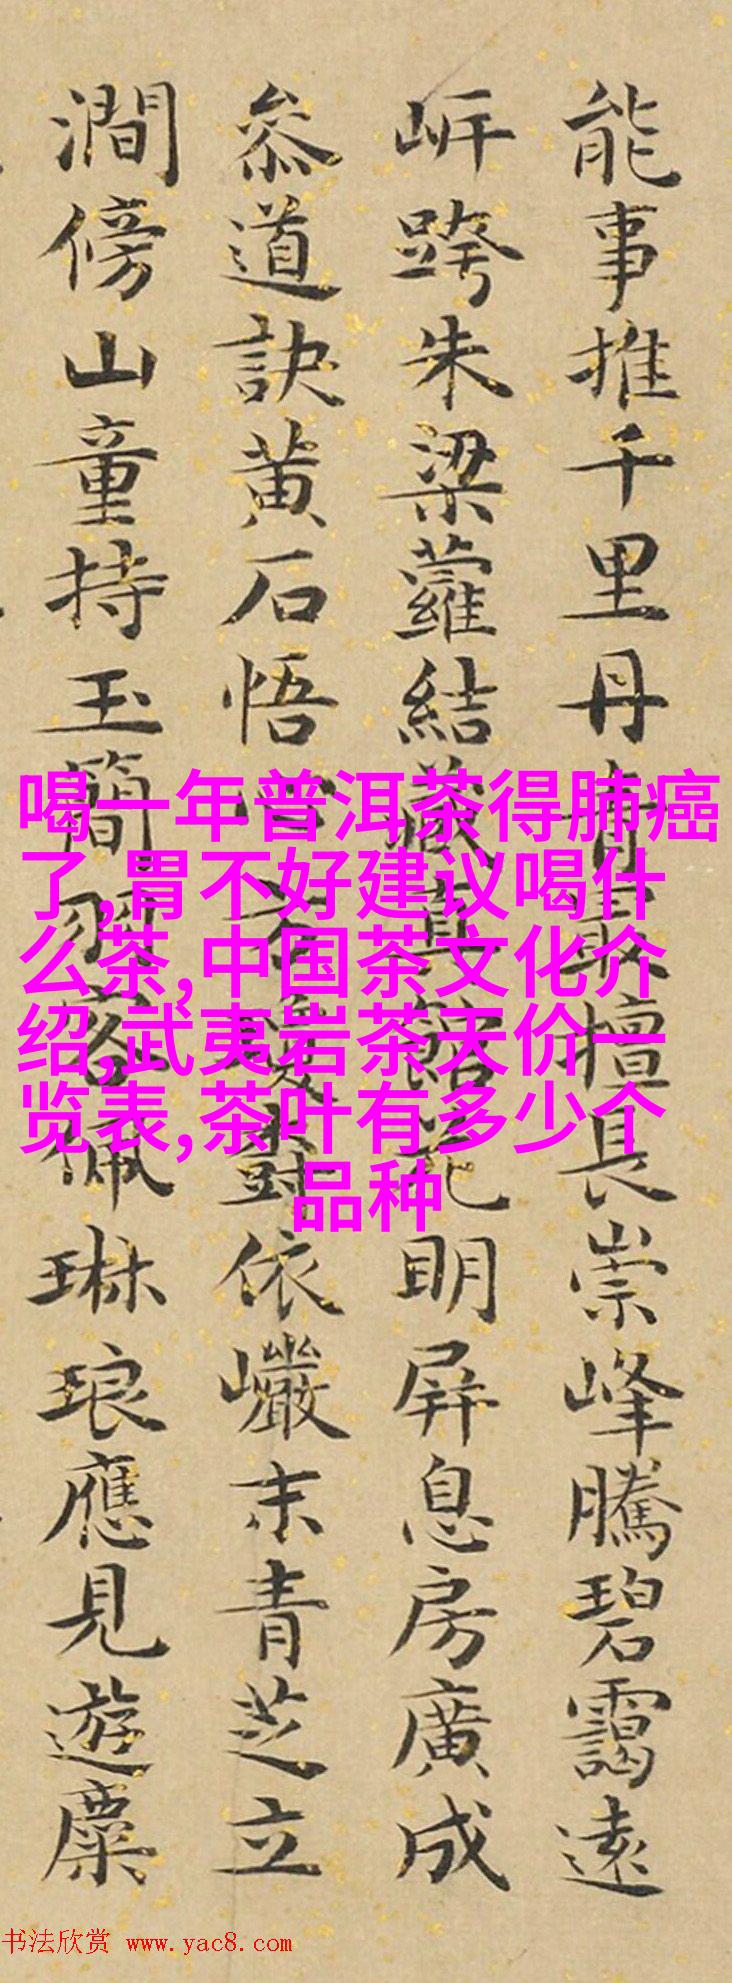 能事推千里丹青最擅長崇峰騰碧靄遠
岍跨朱梁蘿結藏真館花明屏息房廣成
叅道訣黃石悟依巘末青芝立
澗傍山童持玉簡羽客佩琳琅應見遊麋
喝一年普洱茶得肺癌
了,胃不好建议喝什
么茶,中国茶文化介
绍,武夷岩茶天价一
览表,茶叶有多少个
品种
书法欣赏 www.yac8.com